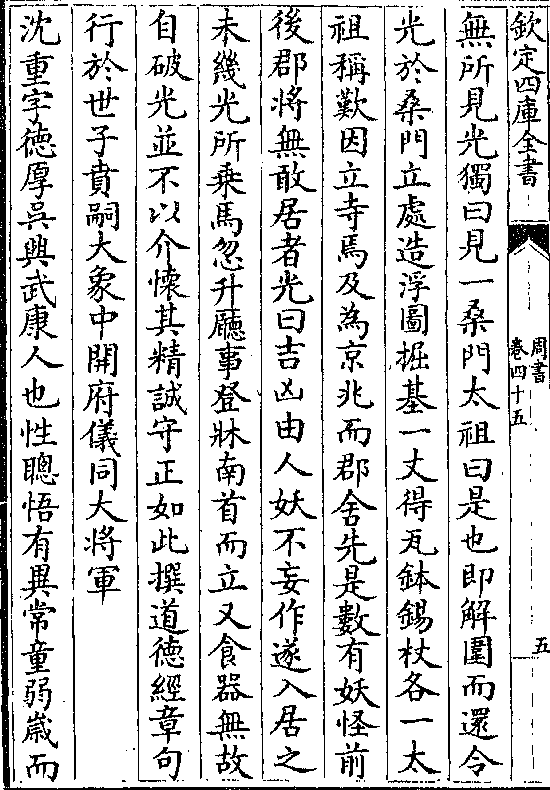 欽定四庫全書
周書
卷四十五
五
無所見光獨曰見一桑門太祖曰是也即解圍而還令
光於桑門立處造浮圖掘基一丈得瓦鉢錫杖各一太
祖稱歎因立寺焉及為京兆而郡舍先是數有妖怪前
後郡將無敢居者光曰吉凶由人妖不妄作遂入居之
未幾光所乗馬忽升㕔事登牀南首而立又食器無故
自破光並不以介懷其精誠守正如此撰道德經章句
行於世子賁嗣大象中開府儀同大將軍
沈重字德厚吳興武康人也性聰悟有異常童弱嵗而